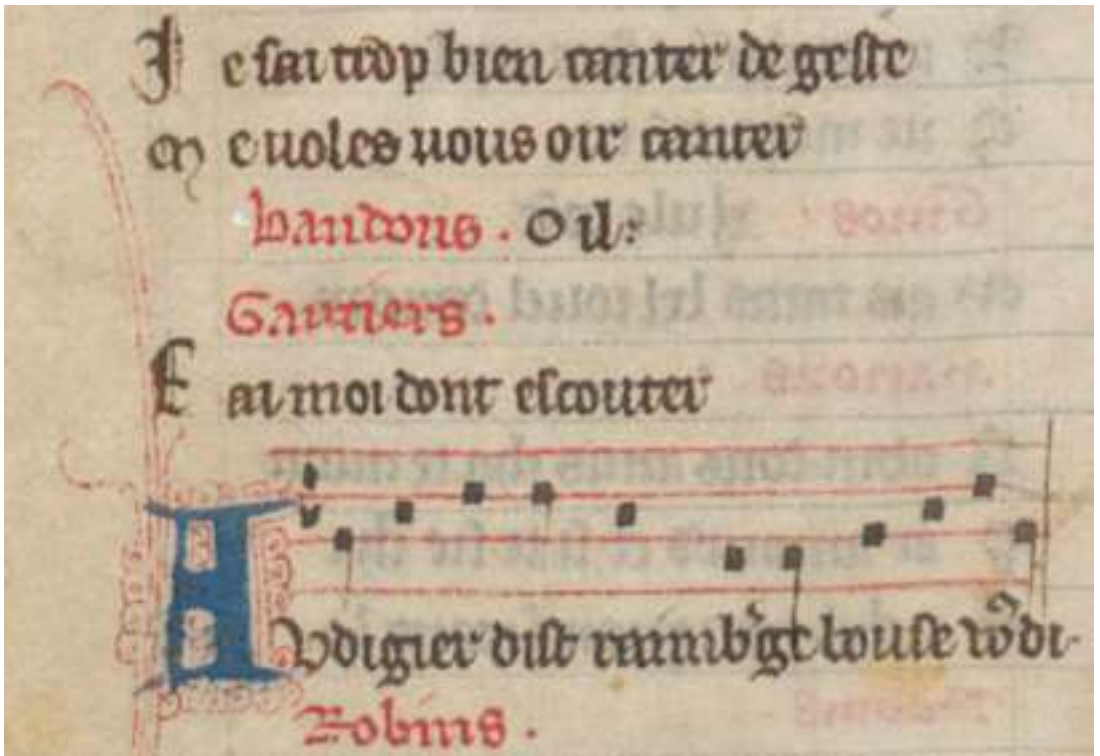 Je sai trop bien canter de geste
Me uoles uous oir canter
Baudons. Oil:
Gautiers.
Fai moi dont escouter
Audigier dist raimb'ge bouse vo9 di-
Robins.